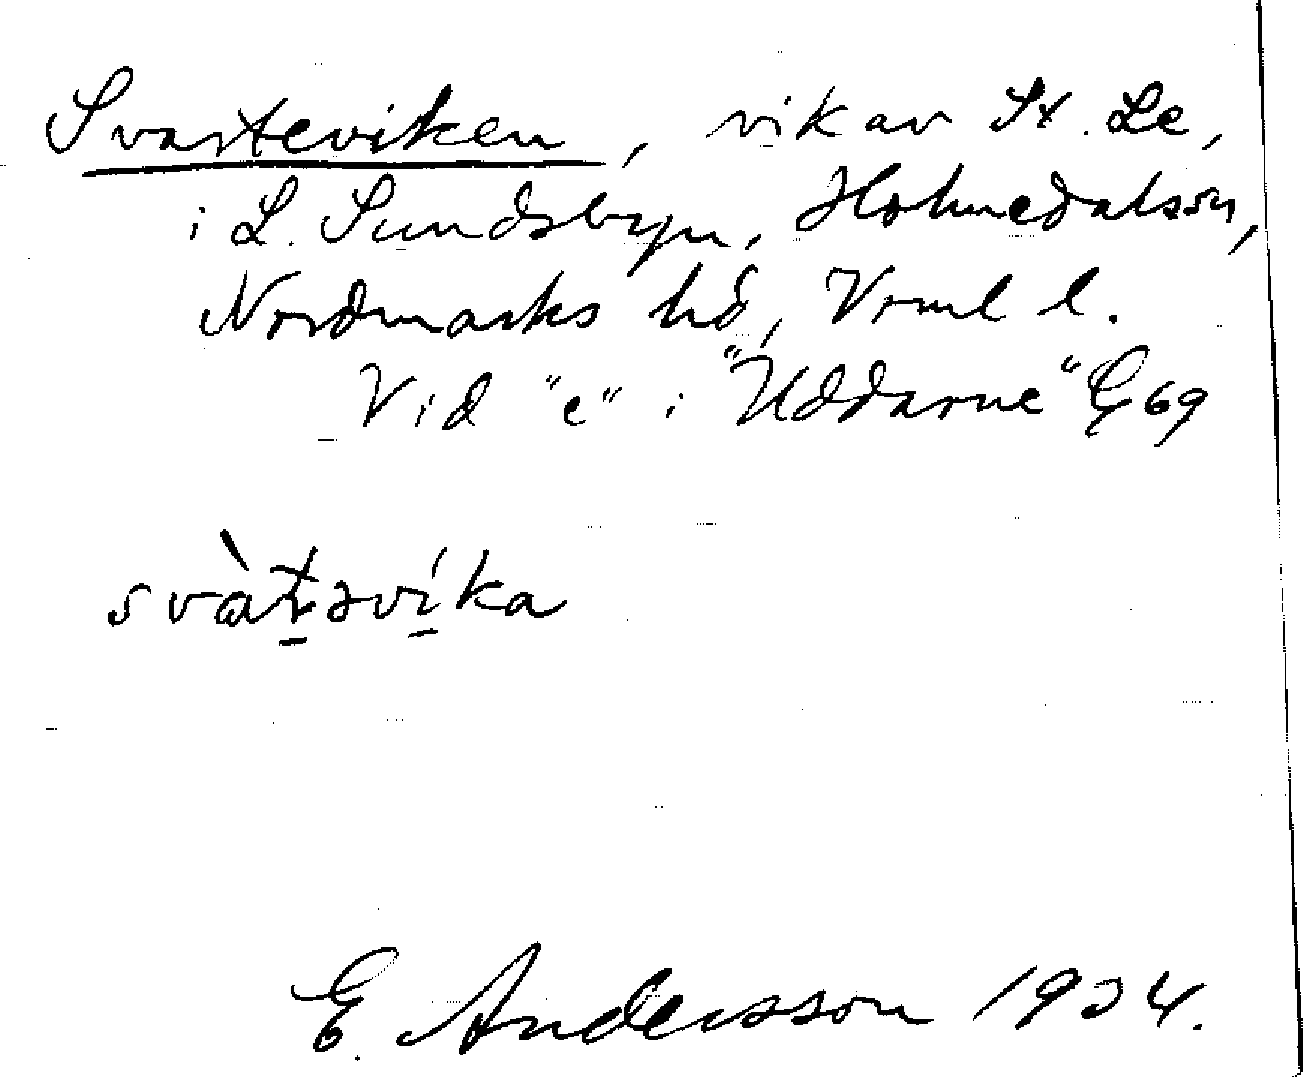 Svarteviken, vik av St. Le,
i L. Sundsbyn, Holmedalssn,
Nordmarks hd, Vrml l.
Vid "e" i "Uddarne" E 69
svàt̠əví̠ka
E. Andersson 1934.